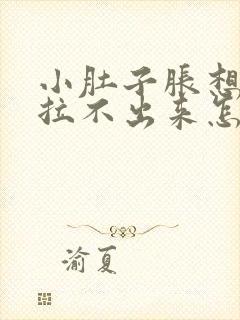 小肚子胀想
拉不出来怎
渝夏